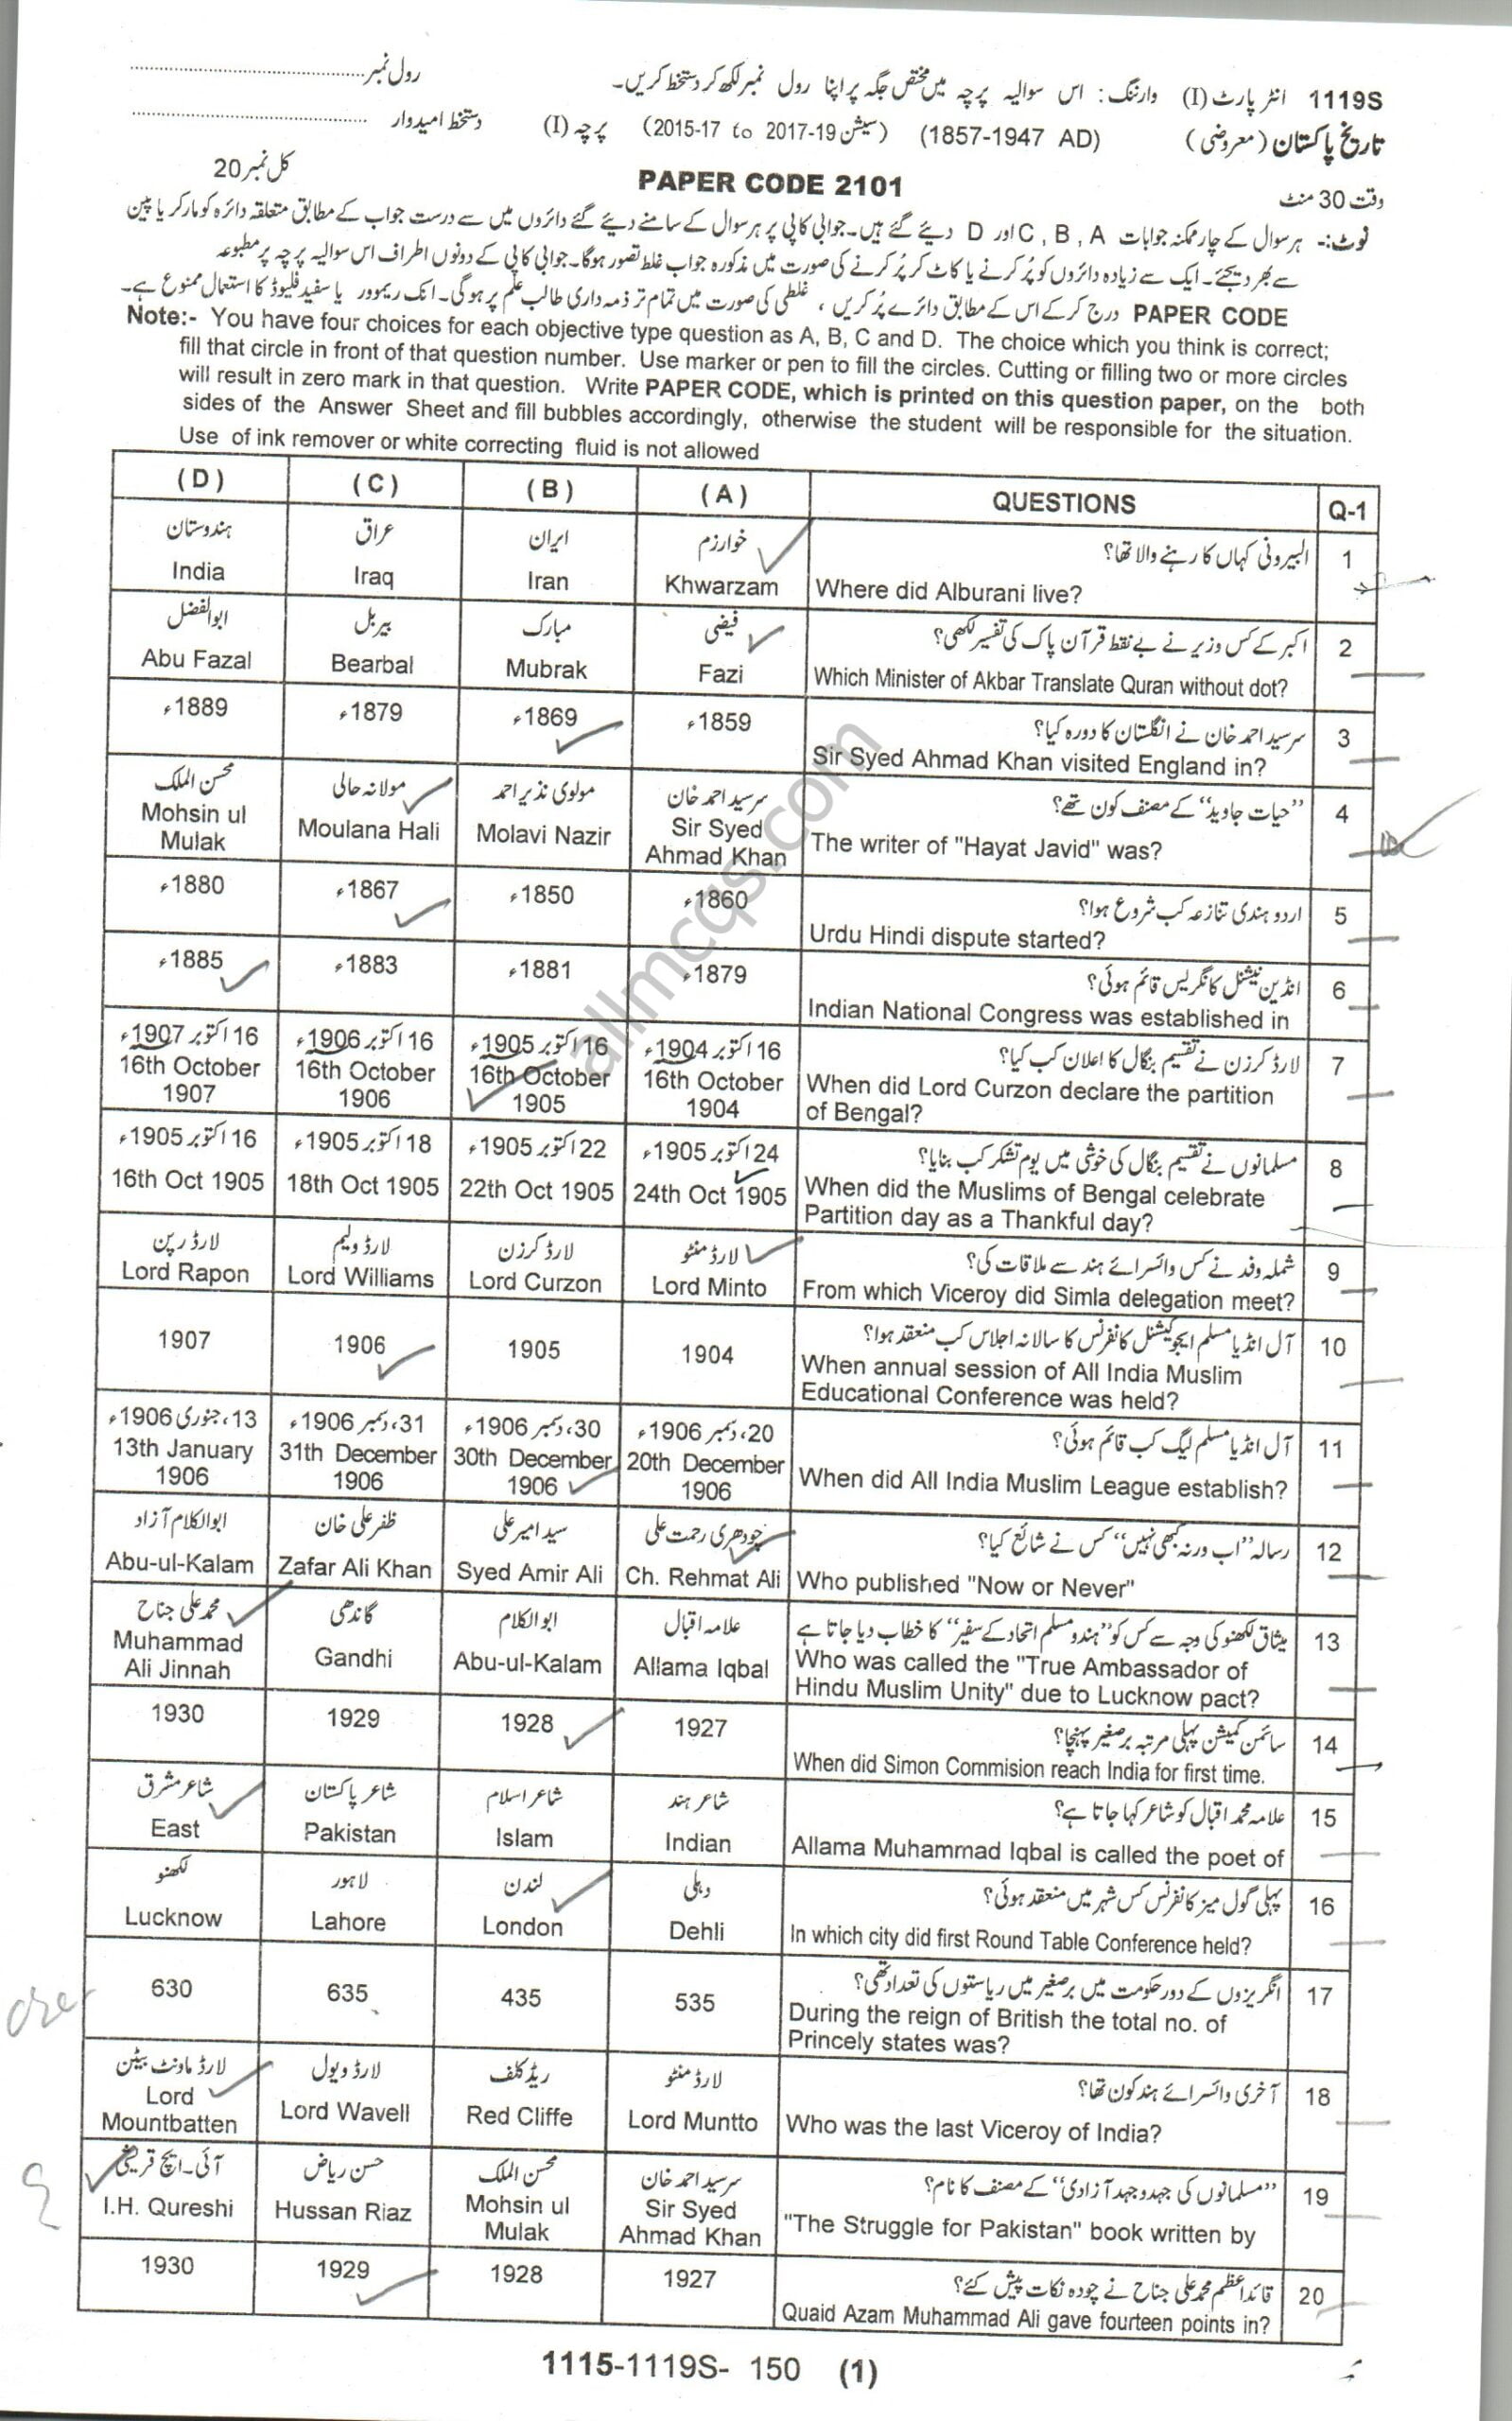 1119S انٹر پارٹ (I) وارننگ: اس سوالیہ پرچہ میں مختص جگہ پر اپنا رول نمبر لکھ کر دستخط کریں۔ رول نمبر
تاریخ پاکستان (معروضی) (1857-1947 AD) (سیشن 2015-17 to 2017-19) پرچہ (I) دستخط امیدوار
وقت 30 منٹ PAPER CODE 2101 کل نمبر 20
نوٹ:- ہر سوال کے چار ممکنہ جوابات A , B , C اور D دیئے گئے ہیں۔ جوابی کاپی پر ہر سوال کے سامنے دیئے گئے دائروں میں سے درست جواب کے مطابق متعلقہ دائرہ کو مارکر یا پین
سے بھر دیجئے۔ ایک سے زیادہ دائروں کو پُر کرنے یا کاٹ کر پُر کرنے کی صورت میں مذکورہ جواب غلط تصور ہوگا۔ جوابی کاپی کے دونوں اطراف اس سوالیہ پرچہ پر مطبوعہ
PAPER CODE درج کر کے اس کے مطابق دائرے پُر کریں ، غلطی کی صورت میں تمام تر ذمہ داری طالب علم پر ہوگی۔ انک ریموور یا سفید فلیوڈ کا استعمال ممنوع ہے۔
Note:- You have four choices for each objective type question as A, B, C and D. The choice which you think is correct;
fill that circle in front of that question number. Use marker or pen to fill the circles. Cutting or filling two or more circles
will result in zero mark in that question. Write PAPER CODE, which is printed on this question paper, on the both
sides of the Answer Sheet and fill bubbles accordingly, otherwise the student will be responsible for the situation.
Use of ink remover or white correcting fluid is not allowed
(D) (C) (B) (A) QUESTIONS Q-1
ہندوستان عراق ایران خوارزم البیرونی کہاں کا رہنے والا تھا؟ 1
India Iraq Iran Khwarzam Where did Alburani live?
ابوالفضل بیربل مبارک فیضی اکبر کے کس وزیر نے بے نقط قرآن پاک کی تفسیر لکھی؟ 2
Abu Fazal Bearbal Mubrak Fazi Which Minister of Akbar Translate Quran without dot?
1889ء 1879ء 1869ء 1859ء سر سید احمد خان نے انگلستان کا دورہ کیا؟ 3
Sir Syed Ahmad Khan visited England in?
محسن الملک مولانہ حالی مولوی نذیر احمد سر سید احمد خان "حیات جاوید" کے مصنف کون تھے؟ 4
Mohsin ul Moulana Hali Molavi Nazir Sir Syed The writer of "Hayat Javid" was?
Mulak Ahmad Khan
1880ء 1867ء 1850ء 1860ء اردو ہندی تنازعہ کب شروع ہوا؟ 5
Urdu Hindi dispute started?
1885ء 1883ء 1881ء 1879ء انڈین نیشنل کانگریس قائم ہوئی؟ 6
Indian National Congress was established in
16 اکتوبر 1907ء 16 اکتوبر 1906ء 16 اکتوبر 1905ء 16 اکتوبر 1904ء لارڈ کرزن نے تقسیم بنگال کا اعلان کب کیا؟ 7
16th October 16th October 16th October 16th October When did Lord Curzon declare the partition
1907 1906 1905 1904 of Bengal?
16 اکتوبر 1905ء 18 اکتوبر 1905ء 22 اکتوبر 1905ء 24 اکتوبر 1905ء مسلمانوں نے تقسیم بنگال کی خوشی میں یوم تشکر کب بنایا؟ 8
16th Oct 1905 18th Oct 1905 22th Oct 1905 24th Oct 1905 When did the Muslims of Bengal celebrate
Partition day as a Thankful day?
لارڈ رپن لارڈ ولیم لارڈ کرزن لارڈ منٹو شملہ وفد نے کس وائسرائے ہند سے ملاقات کی؟ 9
Lord Rapon Lord Williams Lord Curzon Lord Minto From which Viceroy did Simla delegation meet?
1907 1906 1905 1904 آل انڈیا مسلم ایجوکیشنل کانفرنس کا سالانہ اجلاس کب منعقد ہوا؟ 10
When annual session of All India Muslim
Educational Conference was held?
13، جنوری 1906ء 31، دسمبر 1906ء 30، دسمبر 1906ء 20، دسمبر 1906ء آل انڈیا مسلم لیگ کب قائم ہوئی؟ 11
13th January 31th December 30th December 20th December When did All India Muslim League establish?
1906 1906 1906 1906
ابوالکلام آزاد ظفر علی خان سید امیر علی چودھری رحمت علی رسالہ "اب ورنہ کبھی نہیں" کس نے شائع کیا؟ 12
Abu-ul-Kalam Zafar Ali Khan Syed Amir Ali Ch. Rehmat Ali Who published "Now or Never"
محمد علی جناح گاندھی ابوالکلام علامہ اقبال میثاق لکھنو کی وجہ سے کس کو "ہندو مسلم اتحاد کے سفیر" کا خطاب دیا جاتا ہے 13
Muhammad Gandhi Abu-ul-Kalam Allama Iqbal Who was called the "True Ambassador of
Ali Jinnah Hindu Muslim Unity" due to Lucknow pact?
1930 1929 1928 1927 سائمن کمیشن پہلی مرتبہ برصغیر پہنچا؟ 14
When did Simon Commision reach India for first time.
شاعر مشرق شاعر پاکستان شاعر اسلام شاعر ہند علامہ محمد اقبال کو شاعر کہا جاتا ہے؟ 15
East Pakistan Islam Indian Allama Muhammad Iqbal is called the poet of
لکھنو لاہور لندن دہلی پہلی گول میز کانفرنس کس شہر میں منعقد ہوئی؟ 16
Lucknow Lahore London Dehli In which city did first Round Table Conference held?
630 635 435 535 انگریزوں کے دور حکومت میں برصغیر میں ریاستوں کی تعداد تھی؟ 17
During the reign of British the total no. of
Princely states was?
لارڈ ماونٹ بیٹن لارڈ ویول ریڈ کلف لارڈ منٹو آخری وائسرائے ہند کون تھا؟ 18
Lord Lord Wavell Red Cliffe Lord Muntto Who was the last Viceroy of India?
Mountbatten
آئی۔ ایچ قریشی حسن ریاض محسن الملک سر سید احمد خان "مسلمانوں کی جہدوجہد آزادی" کے مصنف کا نام؟ 19
I.H. Qureshi Hussan Riaz Mohsin ul Sir Syed "The Struggle for Pakistan" book written by
Mulak Ahmad Khan
1930 1929 1928 1927 قائد اعظم محمد علی جناح نے چودہ نکات پیش کئے؟ 20
Quaid Azam Muhammad Ali gave fourteen points in?
1115-1119S- 150 (1)
allmcqs.com